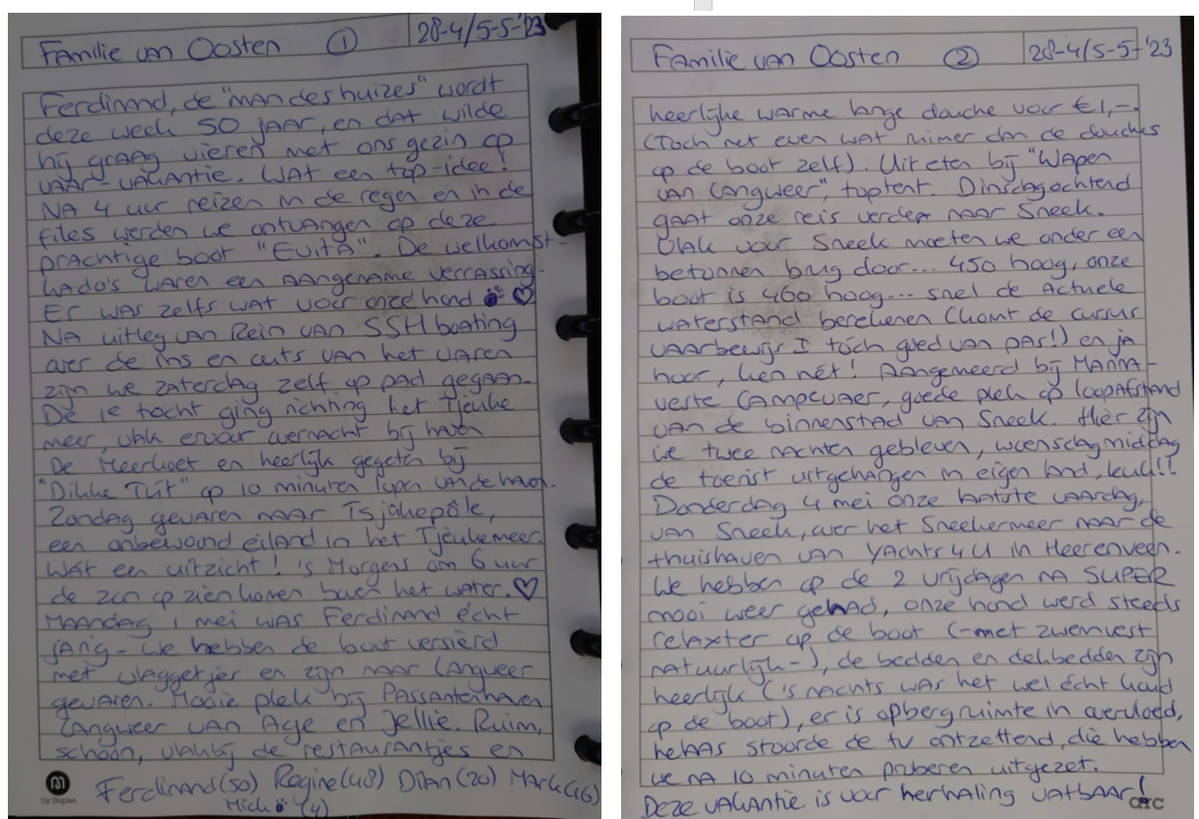 Familie van Oosten 1 28-4/5-5-'23
Ferdinand, de "man des huizes" wordt
deze week 50 jaar, en dat wilde
hij graag vieren met ons gezin op
vaar-vakantie. Wat een top-idee!
Na 4 uur reizen in de regen en in de
files werden we ontvangen op deze
prachtige boot "Evita". De welkomst-
kado's waren een aangename verrassing.
Er was zelfs wat voor onze hond ♡
Na uitleg van Rein van SSH boating
over de ins en outs van het varen
zijn we zaterdag zelf op pad gegaan.
De 1e tocht ging richting het Tjeuke
meer, vlak ervoor overnacht bij haven
De Meerkoet en heerlijk gegeten bij
"Dikke Tút" op 10 minuten lopen van de haven.
Zondag gevaren naar Tsjûkepôle,
een onbewoond eiland in het Tjeukemeer.
Wat een uitzicht! 's Morgens om 6 uur
de zon op zien komen boven het water. ♡
Maandag 1 mei was Ferdinand écht
jarig - we hebben de boot versierd
met vlaggetjes en zijn naar Langweer
gevaren. Mooie plek bij Passantenhaven
Langweer van Age en Jellie. Ruim,
schoon, vlakbij de restaurantjes en
Ferdinand (50) Regine (48) Dilan (20) Mark (16)
Mick (4)
by Staples
Familie van Oosten 2 28-4/5-5-'23
heerlijke warme lange douche voor €1,-.
(Toch net even wat ruimer dan de douches
op de boot zelf). Uit eten bij "Wapen
van Langweer", toptent. Dinsdagochtend
gaat onze reis verder naar Sneek.
Vlak voor Sneek moeten we onder een
betonnen brug door... 450 hoog, onze
boot is 460 hoog... snel de actuele
waterstand berekenen (komt de cursus
vaarbewijs I tóch goed van pas!) en ja
hoor, ken nét! Aangemeerd bij Manna-
veste Camperver, goede plek op loopafstand
van de binnenstad van Sneek. Hier zijn
we twee nachten gebleven, woensdagmiddag
de toerist uitgehangen in eigen land, leuk!!
Donderdag 4 mei onze laatste vaardag,
van Sneek, over het Sneekermeer naar de
thuishaven van Yachts4U in Heerenveen.
We hebben op de 2 vrijdagen na SUPER
mooi weer gehad, onze hond werd steeds
relaxter op de boot (-met zwemvest
natuurlijk-), de bedden en dekbedden zijn
heerlijk ('s nachts was het wel écht koud
op de boot), er is opbergruimte in overvloed,
helaas stoorde de tv ontzettend, die hebben
we na 10 minuten proberen uitgezet.
Deze vakantie is voor herhaling vatbaar!
arc